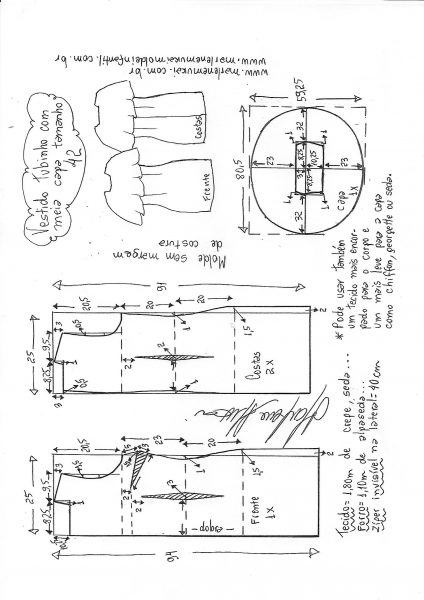 www.marlenemukai.com.br
www.marlenemukaimoldeinfantil.com.br
Vestido Tubinho com
meia capa tamanho
42
Costas
Frente
Molde sem margem
de costura
59,25
80,5
32
1
1
23
8,25
10,25
23
3
8,25
1
1
32
capa
1x
* Pode usar também
um tecido mais encor-
pado para o corpo e
um mais leve para a capa
como chiffon, georgette ou seda.
91
20,5
20
20
2
25
9,5
3
0,5
1
1,5
2
2
8,25
0,5
1
3
Costas
2x
94
20,5
23
20
2
25
9,5
3
1
1,5
2
3
8,25
2
Frente
1x
dobra
Tecido= 1,80m de crepe, seda...
Forro= 1,10m de alpaseda...
Zíper invisível na lateral= 40cm